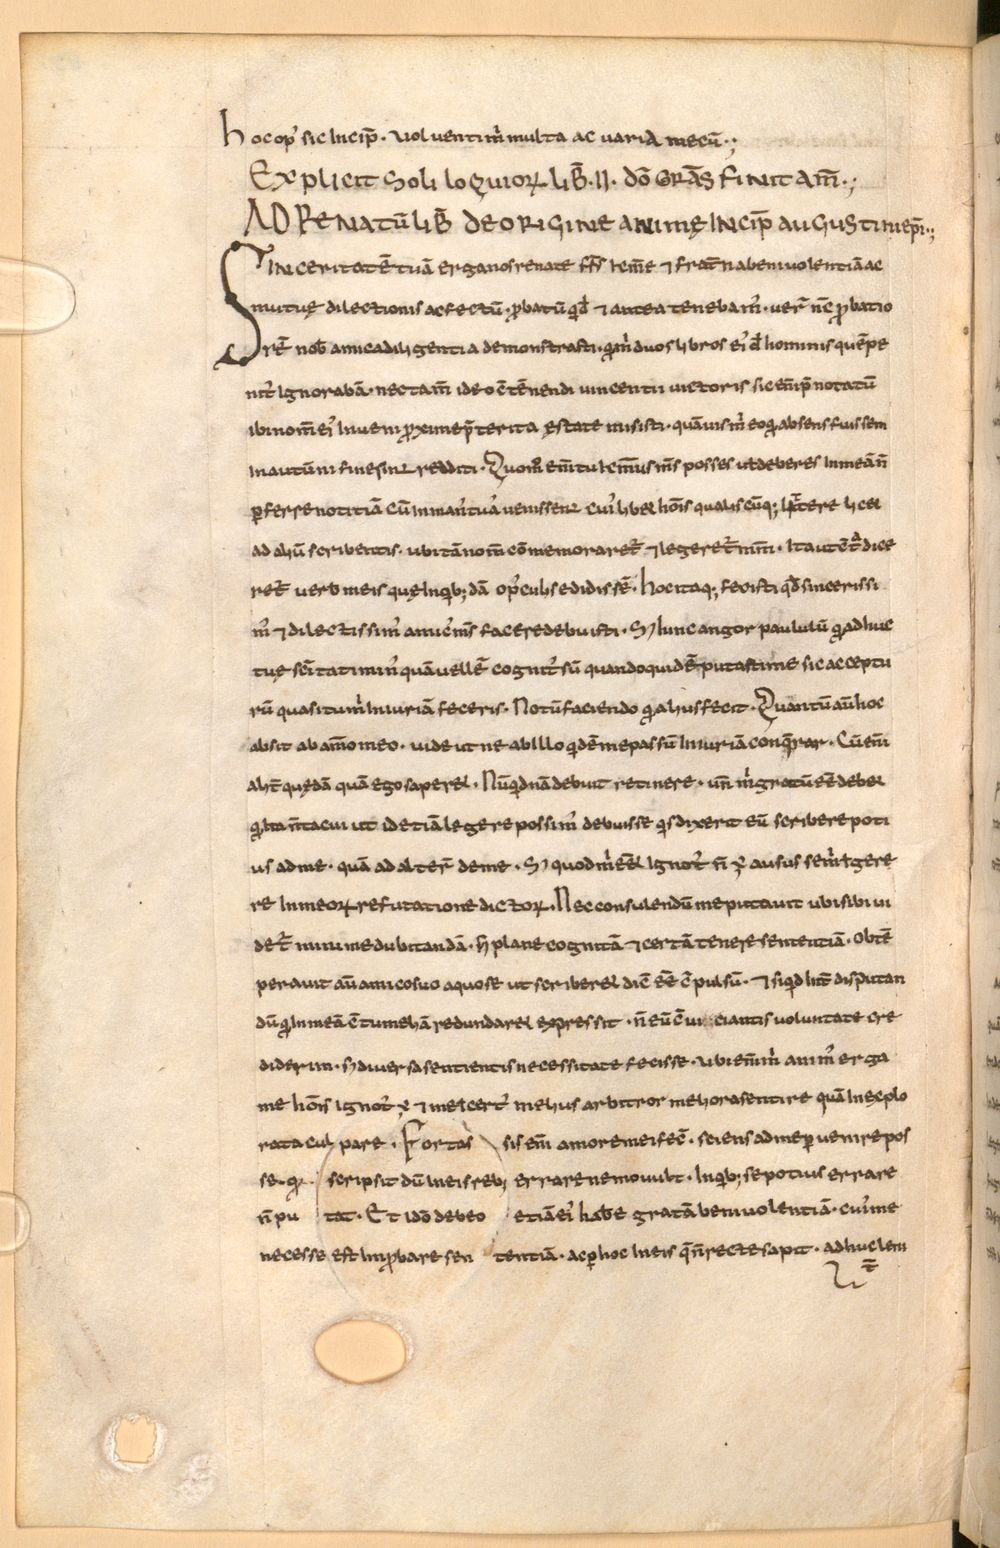 hoc op̄ sic Incip̄. Voluenti m̄ multa ac varia mecū.;
Explicit Soliloquiorꝝ lib̄. II. dō Grās finit am̄.;
AD Renatū lib̄ de origine animę Incip̄ augustini ep̄i.;
Sinceritatē tuā erga nos renate fr̄s kc̄me ⁊ frat̄na beniuolentiā ac
mutuę dilectionis affectū. ꝓbatū qd̄ ⁊ antea tenebam̄. uer̄ nc̄ ꝓbatio
rē nob̄ amica diligentia demonstrasti. qm̄ duos libros ei᷒ d̄ hominis quē pe
nit᷒ Ignorabā. nec tam̄ ideo ctēnendi uincentii uictoris sic em̄ p̄notatū
ibi nom̄ ei᷒ Inueni ꝓxime p̄terita ęstate misisti. quāuis m̄ eo qd̄ absens fuissem
In autūni fine sint redditi. Quom̄ em̄ tu kc̄mus m̄s posses uł deberes In meā n̄
ꝑferre notitiā cū In man᷒ tua᷒ uenissent cui᷒libet hōis qualiscūq; litꝉere licet
ad aliū scribentis. ubi tā nom̄ cōmemoraret̄ ⁊ legeret̄ mm̄. Ita ut ct̄ᵃ dice
ret̄ uerb meis quę Inqb; dā op̄culis edidissē. hoc itaq; fecisti qd̄ sincerissi
m᷒ ⁊ dilectissim᷒ amic᷒ m̄s facere debuisti. S; hinc angor paululū qd̄ adhuc
tuę sc̄itati min᷒ quā uellē cognit᷒ sū quandoquidē putasti me sic acceptu
rū quasi tu m̄ Iniuriā feceris. Notū faciendo qd̄ alius fecit. Quantū aū hoc
absit ab aīo meo. uide ut ne ab Illo qdē me passū Iniuriā conq̄rar. Cū em̄
alit̄ quędā quā ego saperet. Nūqd nā debuit reticere. un̄ m̄ gratū eē debet
qd̄ ita n̄ tacuit ut id etiā legere possim᷒ debuisse q̄s dixerit eū scribere poti
us ad me. quā ad alter̄ de me. S; quod m̄ eēt Ignot᷒ n̄ ę̄ ausus sem̄ Igere
re In meorꝝ refutatione dictorꝝ. Nec consulendū me putauit ubi sibi ui
det̄ minime dubitandā. s; plane cognitā ⁊ certā tenere sententiā. Obtē
perauit aū amico suo a quo se ut scriberet dic̄ eē cpulsū. ⁊ siqd Int̄ disputan
dū qd̄ In meā ctumeliā redundaret expressit. n̄ eū cuiciantis uoluntate cre
diderim. s; diuersa sentientis necessitate fecisse. Ubi em̄ m̄ anim᷒ erga
me hōis Ignot᷒ ę̄ ⁊ Incert᷒ melius arbitror meliora sentire quā Inexplo
rata culpare. Fortassis em̄ amore mei fec̄. sciens ad me ꝑuenire pos
se qd̄ scripsit dū In eis reb; errare me mouult. Inqb; se potius errare
n̄ putat. Et idō debeo etiā ei᷒ habē gratā beniuolentiā. cui᷒ me
necesse est Inꝓbare sententiā. ac ꝑ hoc In eis q̄ n̄ recte sapit. adhuc len
it̄